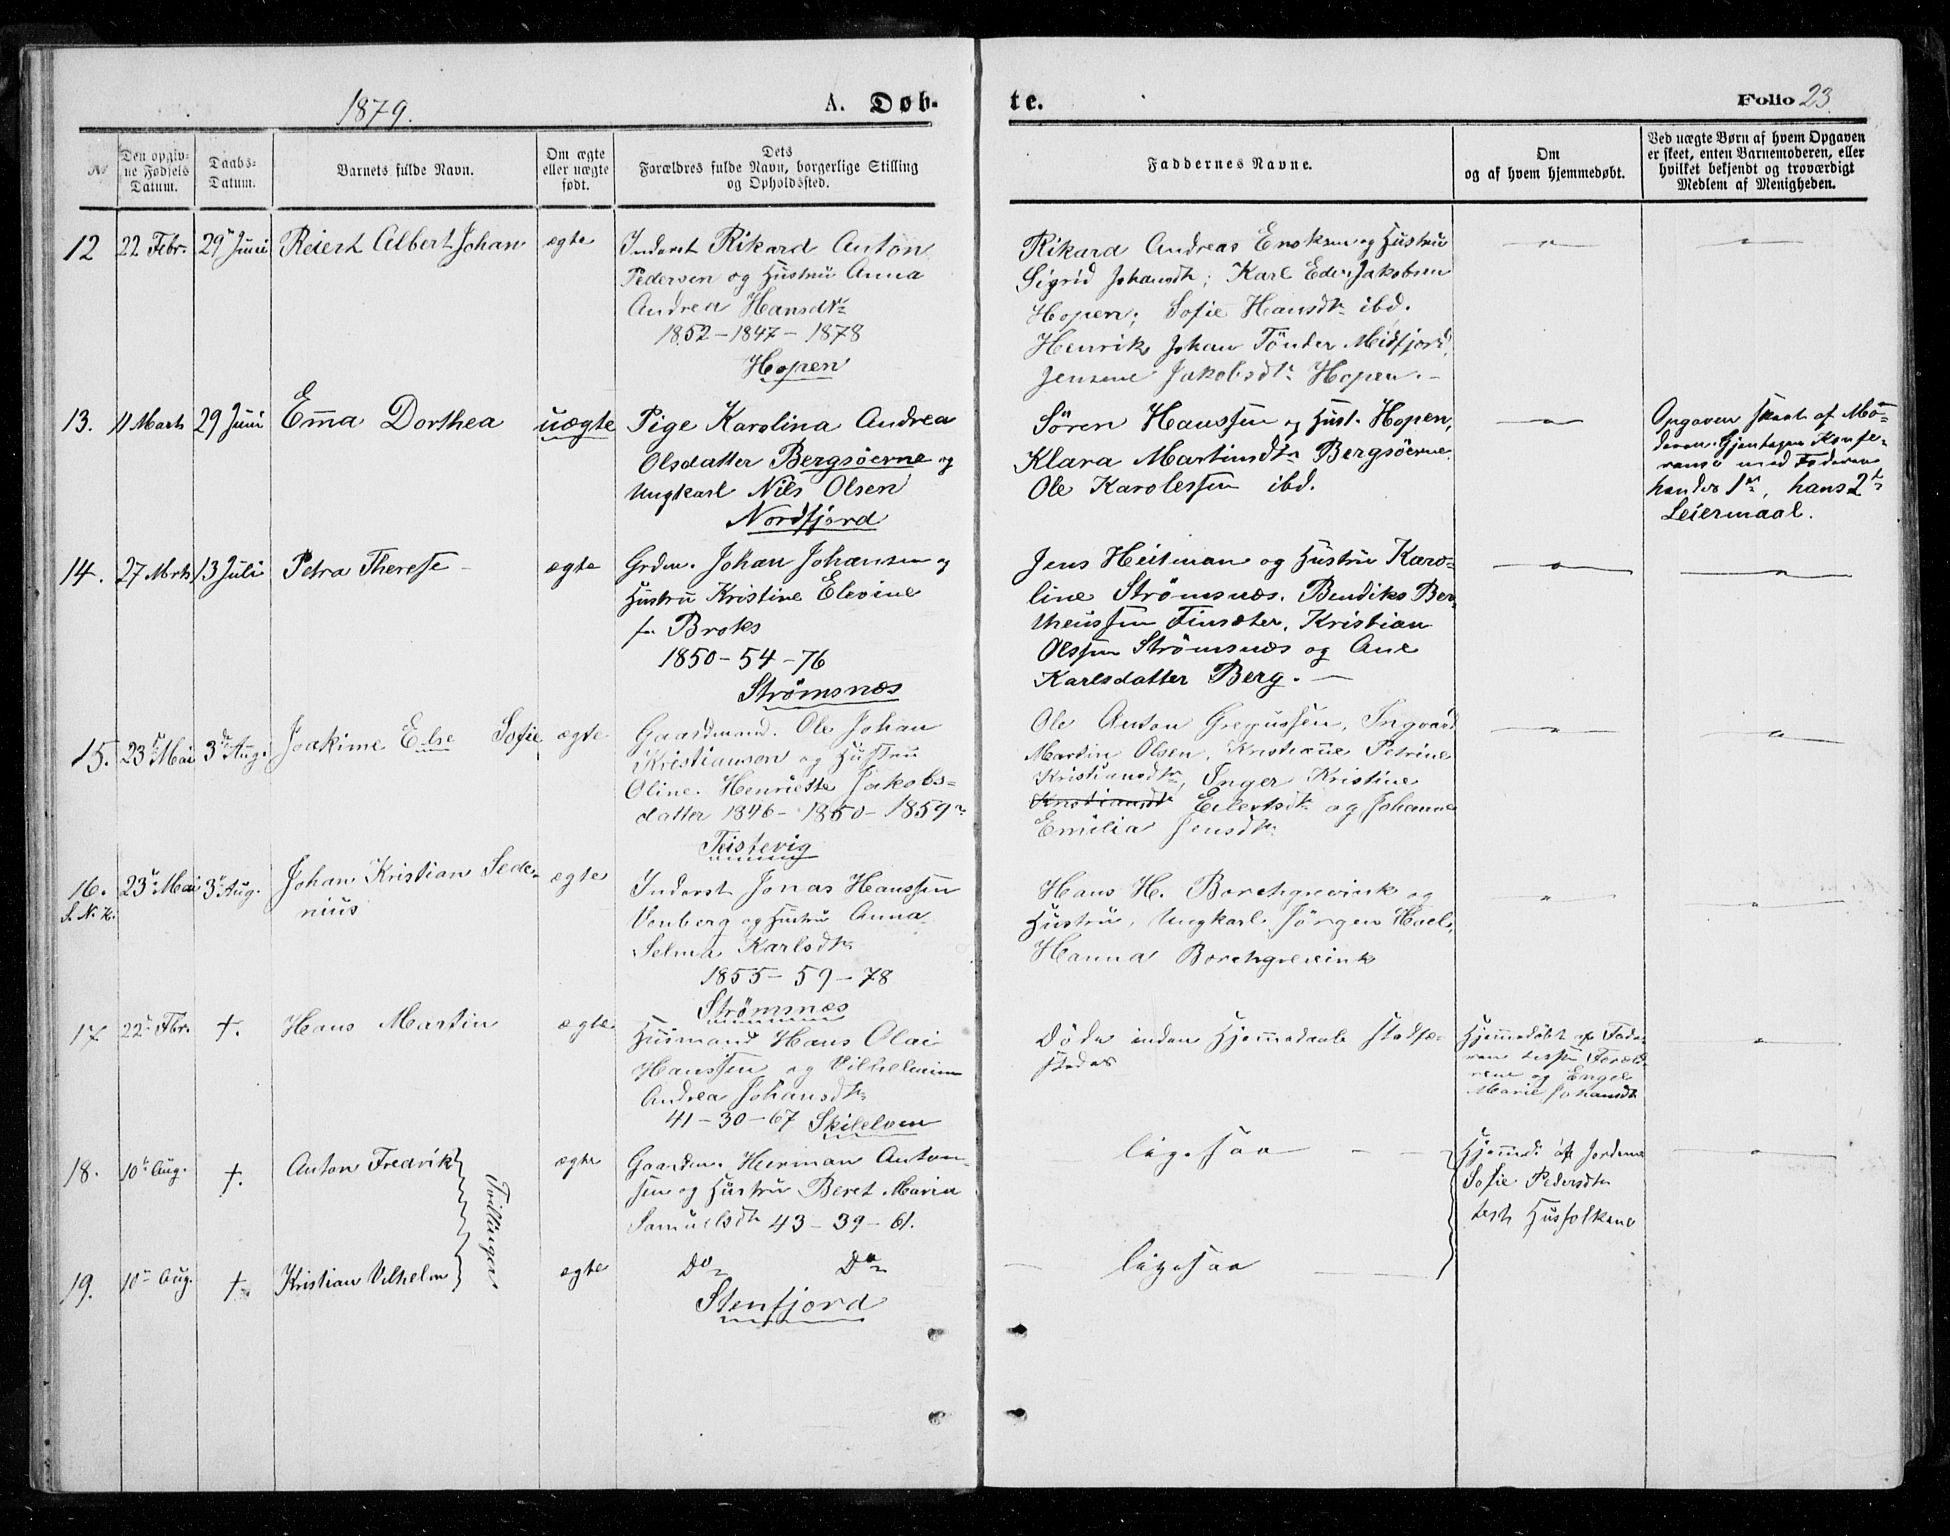 1879.
A. Døb-
te.
Folio 23.
№
Den opgiv-
ne Fødsels
Datum.
Daabs-
Datum.
Barnets fulde Navn.
Om ægte
eller uægte
født.
Dets
Forældres fulde Navn, borgerlige Stilling
og Opholdssted.
Faddernes Navne.
Om
og af hvem hjemmedøbt.
Ved uægte Børn af hvem Opgaven
er skeet, enten Barnemoderen, eller
hvilket bekjendt og troværdigt
Medlem af Menigheden.
12 22 Febr. 29 Juni Reiert Albert Johan ægte
Inderst Rikard Anton
Pedersen og Hustru Anna
Andrea Hansdtr
1852 - 1847 - 1878
Hopen
Rikard Andreas og Hustru
Sigrid Johansdtr; Karl Jakobsen
Hopen; Sofie Hansdtr ibd.
Henrik Johan Tönder Midfjord,
Jensine Jakobsdtr Hopen. -
13. 11 Marts 29 Juni Emma Dorthea uægte
Pige Karolina Andrea
Olsdatter Bergsöerne og
Ungkarl Nils Olsen
Nordfjord
Sören Hanssen og Hust. Hopen,
Klara Martinsdtr Bergsöerne.
Ole Karolessen ibd.
Opgaven skeet af Mo-
deren. Konfe-
rance med Faderen
hendes 1ste, hans 2det
Leiermaal.
14. 27 Mrts 13 Juli Petra Therese - ægte
Grdm. Johan Johansen og
Hustru Kristine Elevine
f. Broks
1850 - 54 - 76
Strømsnæs
Jens Heitman og Hustru Karo-
line Strømsnæs. Bendiks Ber-
theussen Finsæter, Kristian
Olssen Strømsnæs og Ane
Karlsdatter Berg. -
15. 23 Mai 3 Aug. Joakime Else Sofie ægte
Gaardmand. Ole Johan
Kristiansen og Hustru
Oline Henriette Jakobs-
datter 1846 - 1850 - 1859
Teistevig
Ole Anton Gregussen, Ingvard
Martin Olsen, Kristiane Petrine
Kristiansdtr, Inger Kristine
Kristiansdtr Eilertsdtr og Johanne
Emilia Jensdtr
16. 23 Mai 3 Aug. Johan Kristian Sede- ægte
S. N. K.
nius
Inderst Jonas Hanssen
Vonberg og Hustru Anna
Selma Karlsdtr
1855 - 59 - 78
Strømsnes
Hans H. Borchgrevink og
Hustru, Ungkarl Jörgen Hoel,
Hanna Borchgrevink
17 22 Fbr. †. Hans Martin ægte
Husmand Hans Olai
Hanssen og Vilhelmine
Andrea Johansdtr
41 - 30 - 67 Skilelven
Döde inden Hjemmedaab stadfæ-
stedes
Hjemmedøbt af Fade-
ren Foræld-
rene og Engel
Marie Johansdtr
18. 10 Aug. †. Anton Fredrik ægte
Tvillinger
Gaardm. Herman Anton-
sen og Hustru Beret Marin
Samuelsdtr 43 - 39 - 61.
ligesaa - -
Hjemmd. af Jordemor
Sofie Pedersdtr
test. Husfolkene
19. 10 Aug. † Kristian Vilhelm ægte
Do Do
Stenfjord
ligesaa